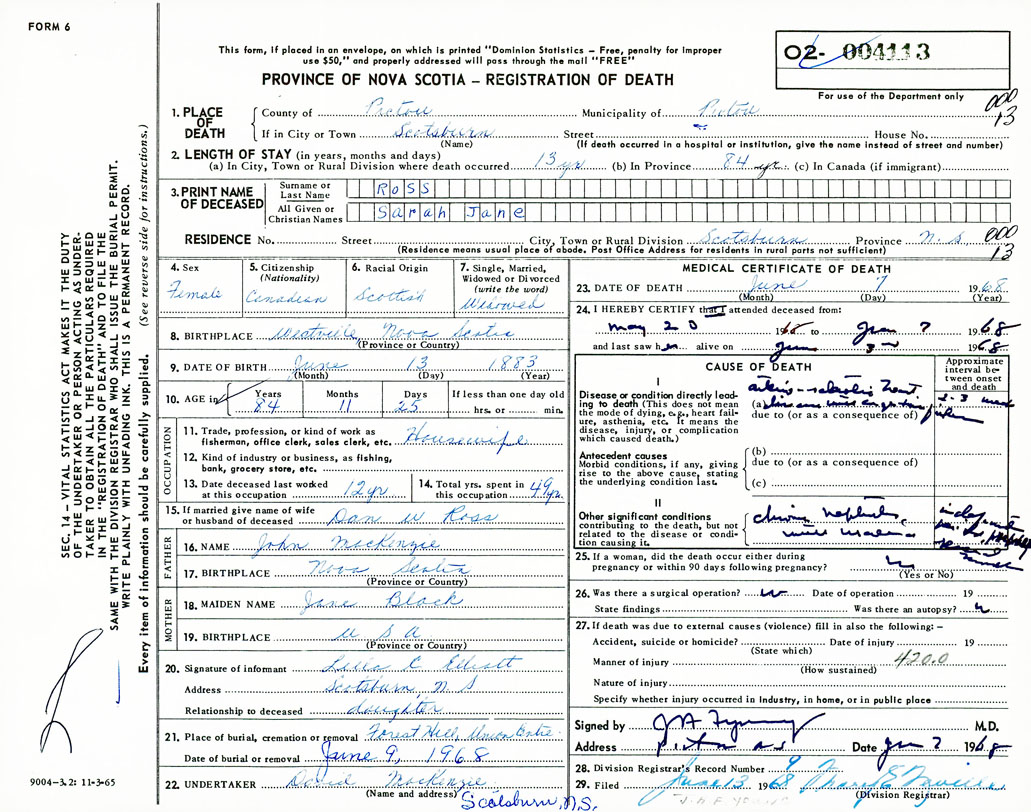 FORM 6
This form, if placed in an envelope, on which is printed "Dominion Statistics – Free, penalty for improper
use $50," and properly addressed will pass through the mail "FREE"
PROVINCE OF NOVA SCOTIA – REGISTRATION OF DEATH
02- 004113
For use of the Department only
000
13
1. PLACE OF DEATH
County of Pictou Municipality of Pictou
If in City or Town Scotsburn Street House No.
(Name) (If death occurred in a hospital or institution, give the name instead of street and number)
2. LENGTH OF STAY (in years, months and days)
(a) In City, Town or Rural Division where death occurred 13 yr (b) In Province 84 yr. (c) In Canada (if immigrant)
3. PRINT NAME OF DECEASED
Surname or Last Name ROSS
All Given or Christian Names Sarah Jane
RESIDENCE No. Street City, Town or Rural Division Scotsburn Province N. S
(Residence means usual place of abode. Post Office Address for residents in rural parts not sufficient)
000
13
4. Sex
Female
5. Citizenship
(Nationality)
Canadian
6. Racial Origin
Scottish
7. Single, Married,
Widowed or Divorced
(write the word)
Widowed
8. BIRTHPLACE Westville Nova Scotia
(Province or Country)
9. DATE OF BIRTH June 13 1883
(Month) (Day) (Year)
10. AGE in
Years Months Days If less than one day old
84 11 25 hrs. or min.
OCCUPATION
11. Trade, profession, or kind of work as
fisherman, office clerk, sales clerk, etc. Housewife
12. Kind of industry or business, as fishing,
bank, grocery store, etc.
13. Date deceased last worked
at this occupation 12 yr
14. Total yrs. spent in
this occupation 49 yr
15. If married give name of wife
or husband of deceased Dan W Ross
FATHER
16. NAME John MacKenzie
17. BIRTHPLACE Nova Scotia
(Province or Country)
MOTHER
18. MAIDEN NAME Jane Black
19. BIRTHPLACE U S A
(Province or Country)
20. Signature of informant Leila C Elliott
Address Scotsburn, N S
Relationship to deceased daughter
21. Place of burial, cremation or removal Forest Hill, Union
Date of burial or removal June 9, 1968
22. UNDERTAKER MacKenzie
(Name and address) Scotsburn, N.S.
MEDICAL CERTIFICATE OF DEATH
23. DATE OF DEATH June 7 1968
(Month) (Day) (Year)
24. I HEREBY CERTIFY that I attended deceased from:
May 20 1968 to June 7 1968
and last saw her alive on June 3rd 1968
CAUSE OF DEATH
Approximate
interval be-
tween onset
and death
I
Disease or condition directly lead-
ing to death (This does not mean
the mode of dying, e.g., heart fail-
ure, asthenia, etc. It means the
disease, injury, or complication
which caused death.)
(a)
due to (or as a consequence of)
2-3
Antecedent causes
Morbid conditions, if any, giving
rise to the above cause, stating
the underlying condition last.
(b)
due to (or as a consequence of)
(c)
II
Other significant conditions
contributing to the death, but not
related to the disease or condi-
tion causing it.
25. If a woman, did the death occur either during
pregnancy or within 90 days following pregnancy?
(Yes or No)
26. Was there a surgical operation? Date of operation 19
State findings Was there an autopsy?
27. If death was due to external causes (violence) fill in also the following: –
Accident, suicide or homicide? Date of injury 19
(State which)
Manner of injury 420.0
(How sustained)
Nature of injury
Specify whether injury occurred in industry, in home, or in public place
Signed by M.D.
Address Pictou N S Date June 7 1968
28. Division Registrar's Record Number 9
29. Filed June 13 1968
(Division Registrar)
SEC. 14 – VITAL STATISTICS ACT MAKES IT THE DUTY
OF THE UNDERTAKER OR PERSON ACTING AS UNDER-
TAKER TO OBTAIN ALL THE PARTICULARS REQUIRED
IN THE "REGISTRATION OF DEATH" AND TO FILE THE
SAME WITH THE DIVISION REGISTRAR WHO SHALL ISSUE THE BURIAL PERMIT.
WRITE PLAINLY WITH UNFADING INK. THIS IS A PERMANENT RECORD.
Every item of information should be carefully supplied. (See reverse side for instructions.)
9004–3.2: 11-3-65